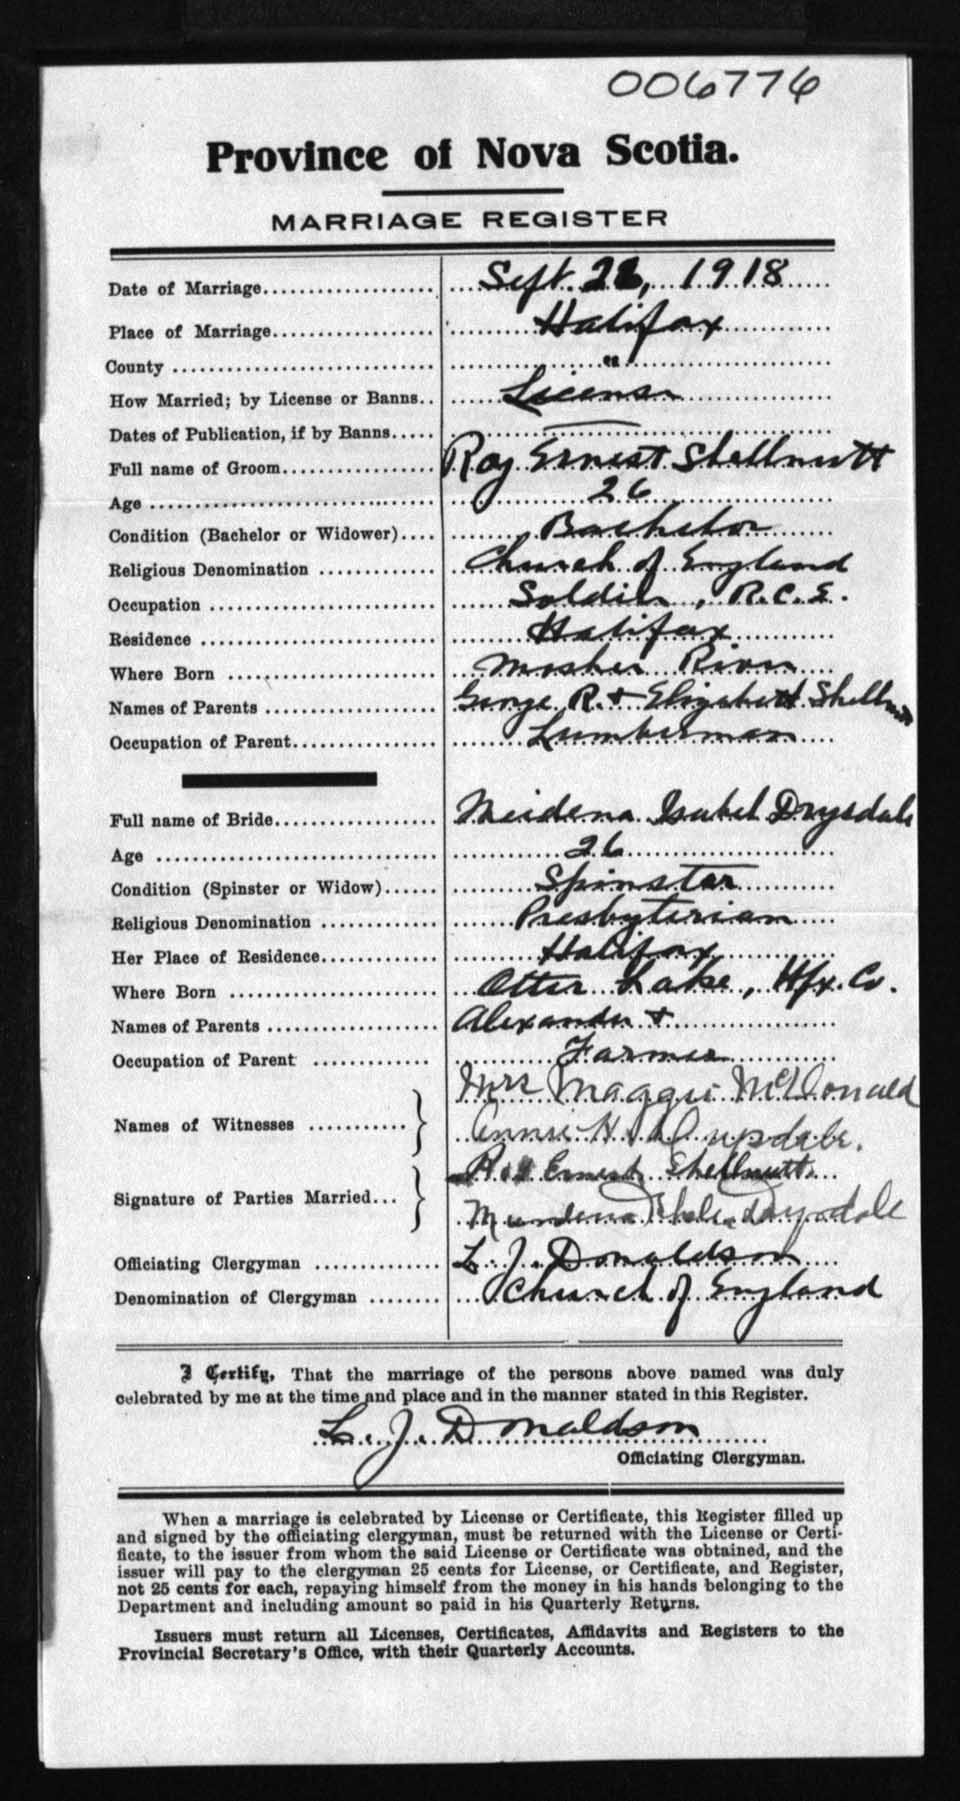 006776
Province of Nova Scotia.
MARRIAGE REGISTER
Date of Marriage Sept. 1918
Place of Marriage Halifax
County "
How Married; by License or Banns License
Dates of Publication, if by Banns —
Full name of Groom Roy Ernest Shellnutt
Age 26
Condition (Bachelor or Widower) Bachelor
Religious Denomination Church of England
Occupation Soldier, R.C.E.
Residence Halifax
Where Born Mosher River
Names of Parents George R. & Elizabeth Shellnutt
Occupation of Parent Lumberman
Full name of Bride Isabel Drysdale
Age 26
Condition (Spinster or Widow) Spinster
Religious Denomination Presbyterian
Her Place of Residence Halifax
Where Born Otter Lake, Hfx. Co.
Names of Parents Alexander &
Occupation of Parent Farmer
Mrs Maggie McDonald
Names of Witnesses
Annie H Drysdale.
Roy Ernest Shellnutt
Signature of Parties Married
Drysdale
Officiating Clergyman L. J. Donaldson
Denomination of Clergyman Church of England
I Certify, That the marriage of the persons above named was duly
celebrated by me at the time and place and in the manner stated in this Register.
L. J. Donaldson
Officiating Clergyman.
When a marriage is celebrated by License or Certificate, this Register filled up
and signed by the officiating clergyman, must be returned with the License or Certi-
ficate, to the issuer from whom the said License or Certificate was obtained, and the
issuer will pay to the clergyman 25 cents for License, or Certificate, and Register,
not 25 cents for each, repaying himself from the money in his hands belonging to the
Department and including amount so paid in his Quarterly Returns.
Issuers must return all Licenses, Certificates, Affidavits and Registers to the
Provincial Secretary's Office, with their Quarterly Accounts.